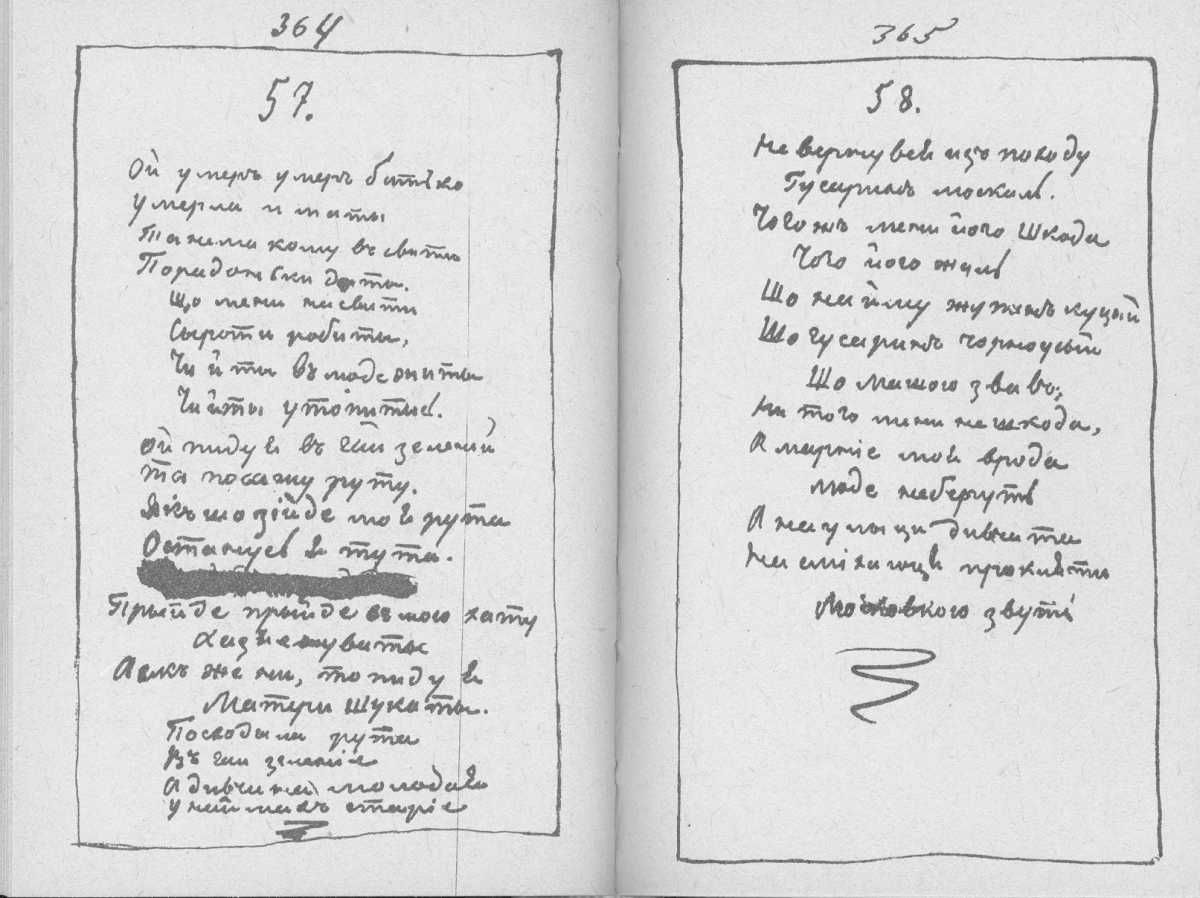 364
57.
Ой умеръ умеръ батько
умерла и маты
Та нема кому въ свити
Порадоньки даты.
Що мени на свити
Сыроти робыты,
Чи йты въ люде жыты
Чи йты утопытыся.
Ой пиду я въ гай зеленый
та посажу руту.
Якъ що зійде моя рута
Остануся я тута.
Прыйде прыйде въ мою хату
хазяенуваты
А якъ же ни, то пиду я
Матери шукаты.
Посходыла рута
Въ гаи зеленіе
А дивчина молодая
У наймахъ старіе
365
58.
Не вернувся изъ походу
Гусарынъ москаль.
Чого жъ мени його шкода
Чого його жаль
Що на йому жупанъ куцый
Що гусарынъ чорноусый
Що Машою звавъ;
Ни того мени не шкода,
А марніе моя врода
люде не беруть
А на улыци дивчата
Насміхаюця прокляти
Московкою звуть